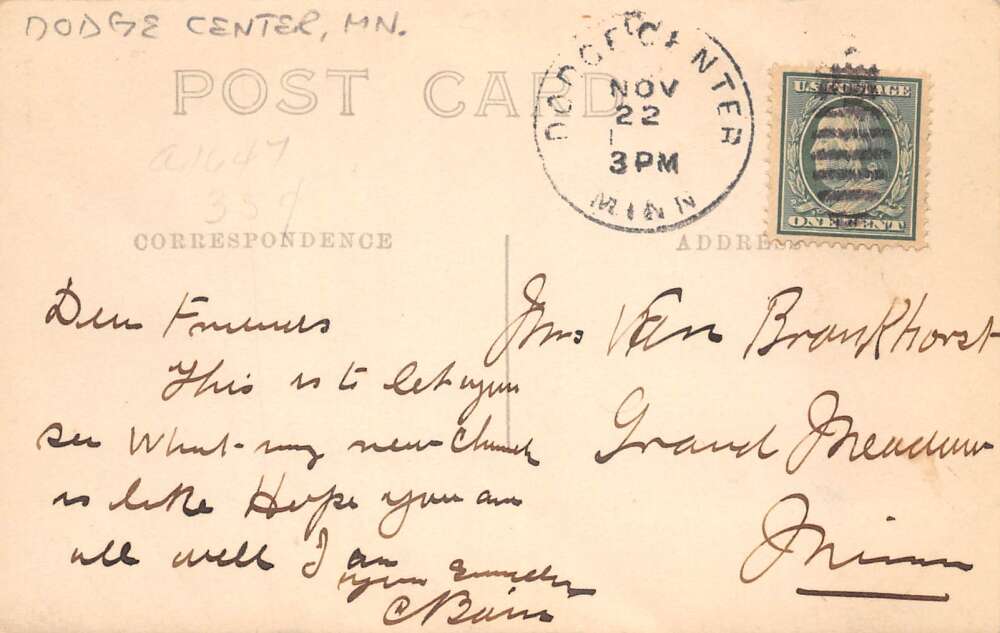 DODGE CENTER, MN.
POST CARD
DODGE CENTER
NOV
22
3 PM
MINN
U.S. POSTAGE
ONE CENT
a1647
357
CORRESPONDENCE
ADDRESS
Dear Friends
This is to let you
see What my new Church
is like Hope you are
all well I am
yours
C Bain
Van Bronkhorst
Grand Meadow
Minn